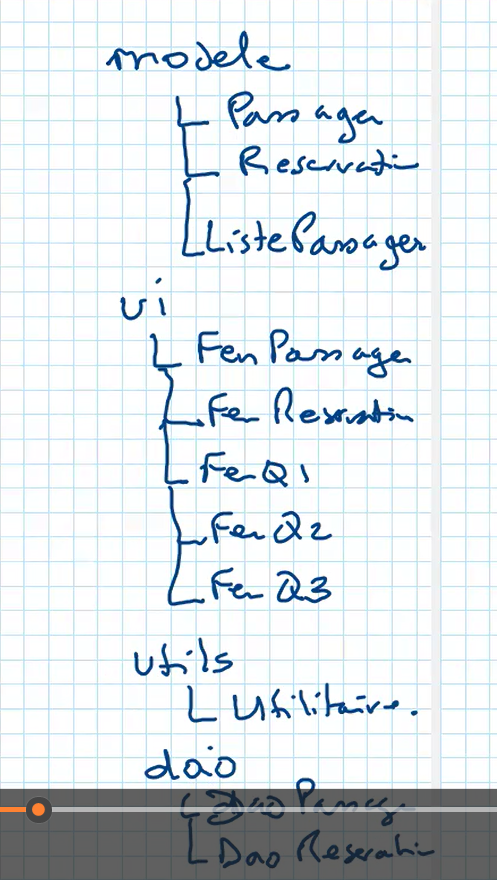 modele
Passager
Reservation
ListePassager
ui
Fen Passager
Fen Reservation
Fen Q1
Fen Q2
Fen Q3
utils
Utilitaire.
dao
Dao Passager
Dao Reservation